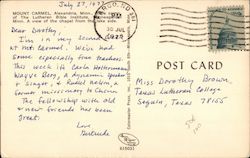 MOUNT CARMEL, Alexandria, Minn.
of The Lutheran Bible Institute,
Minn. A view of the chapel from the lake side.
July 27, 19
Dear Dorothy,
I'm in my second
at Mt Carmel. We've had
some especially fine teachers.
This week it's Carla Holtermann,
Wayne Berg, a dynamic speaker
& singer, & Rubel Nelson, a
former missionary to China.
The fellowship with old
& new friends has been
great.
Love
Gertrude
30 JUL
1975
POST CARD
Miss Dorothy Brown
Texas Lutheran College
Seguin, Texas 78155